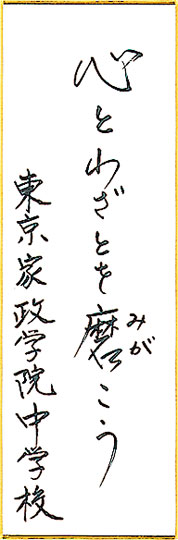 心とわざとを磨こう
みが
東京家政学院中学校